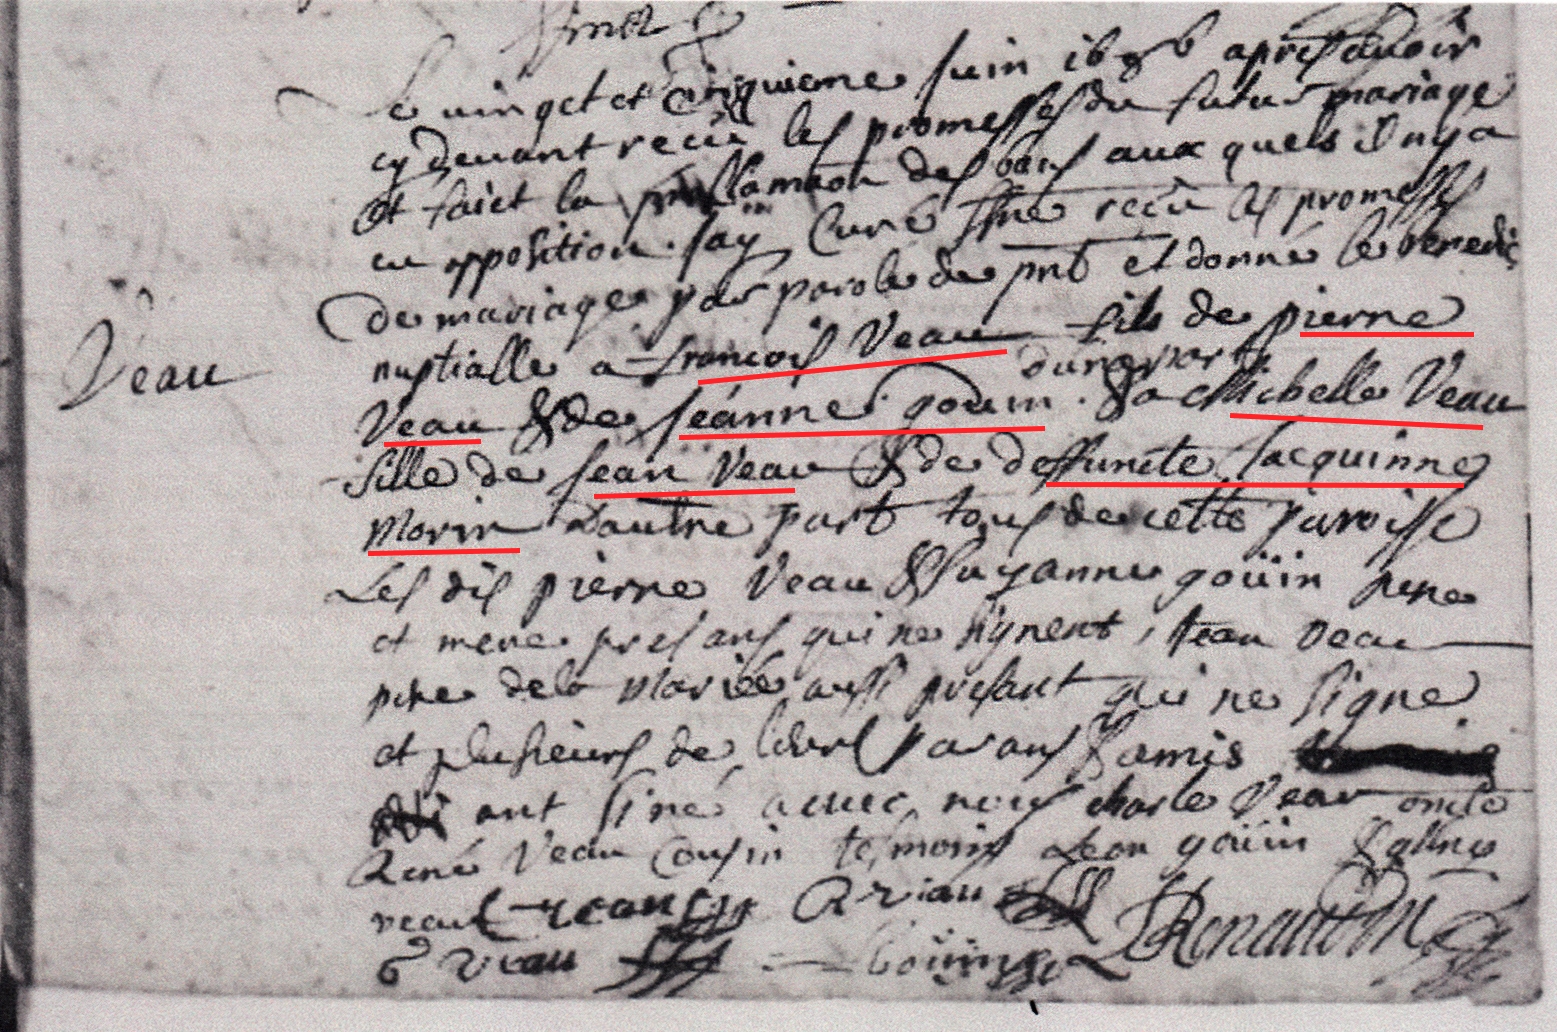 Le vinget et cinquieme juin 1696 apres avoir
cy devant receu les promesses du futur mariage
et faict la proclamaon des bans aux quels il ny a
eu opposition. jay Curé ssné receu les promesses
de mariage par parole de pnt et donné la benedic
nuptialle a francois Veau fils de pierre
dune part
Veau
Veau & de jeanne goüin. & a Michelle Veau
fille de jean Veau & de deffuncte jacquinne
Morin d'autre part tous de cette paroisse
Les dis pierre Veau & suzanne goüin pere
et mere presans qui ne signent, jean Veau
pere de la Mariée aussi presant qui ne signe
et plusieurs de leurs parans & amis
ont siné avec nous charle Veau oncle
René Veau Cousin tesmoins Leon goüin
veau R Viau
Veau Goüin Renault